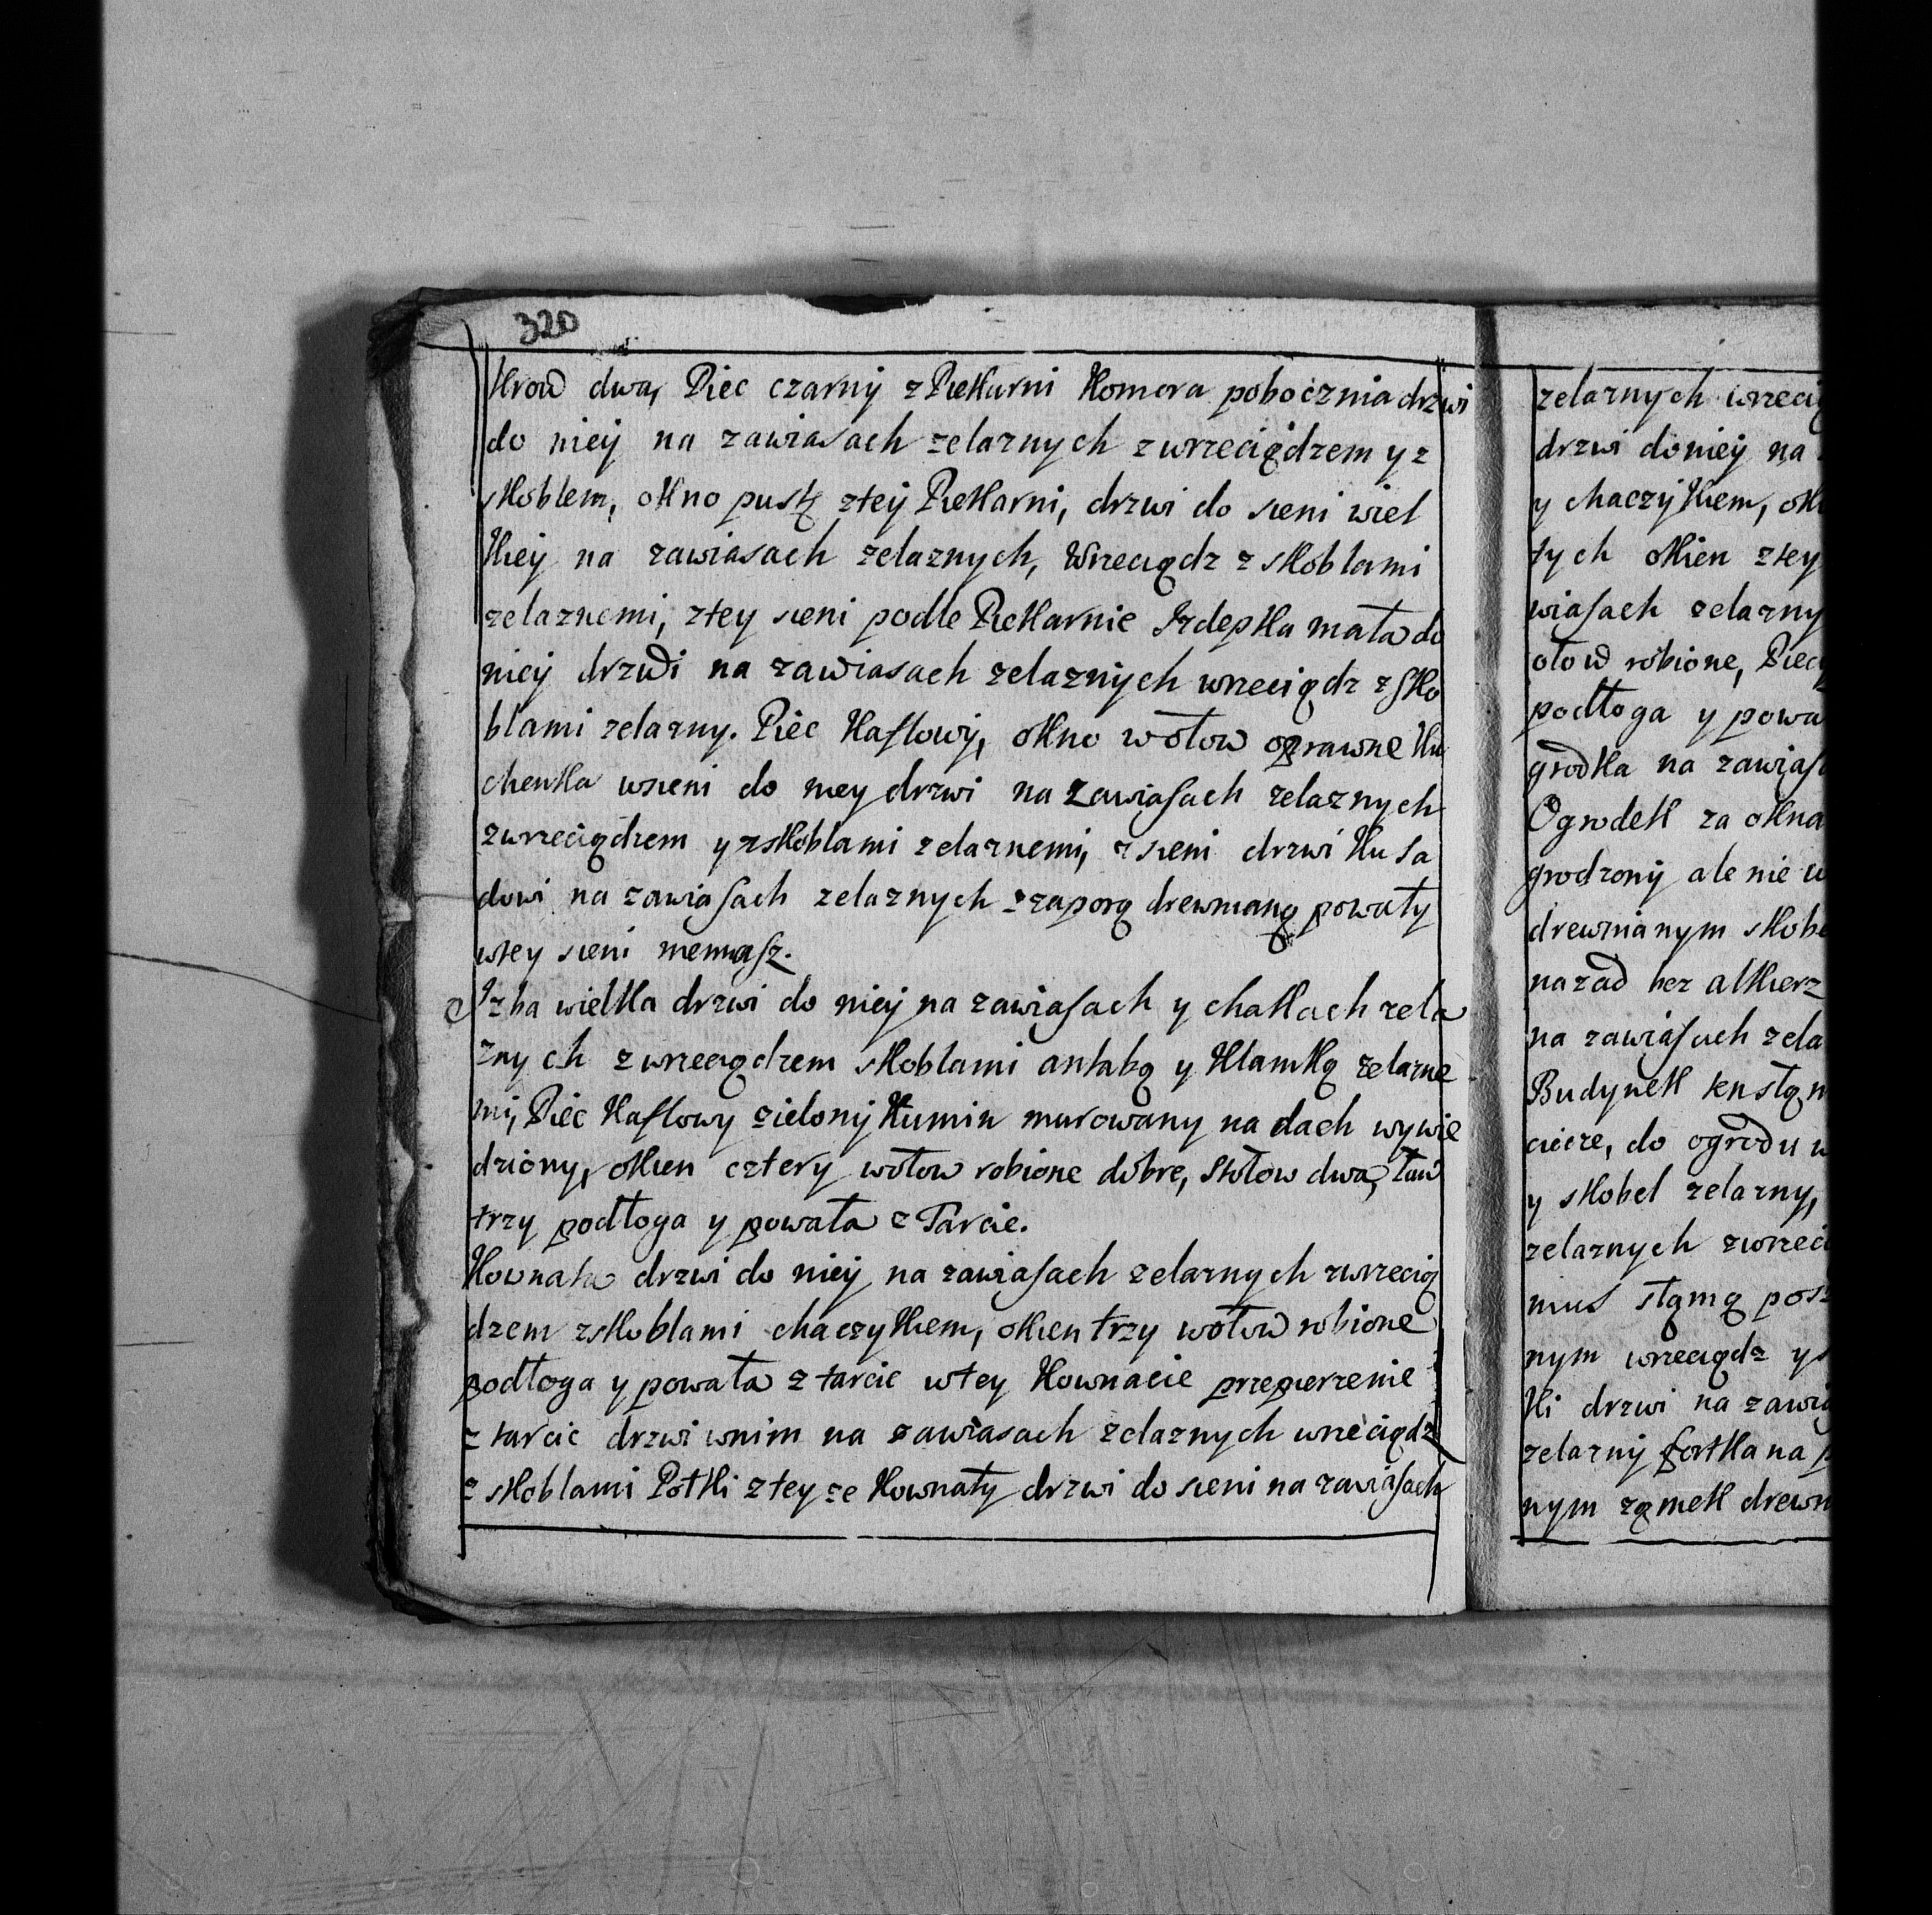 320
Krow dwa, Piec czarny z Piekarni Komora pobocznia drzwi
do niey na zawiasach zelaznych z wrzeciądzem y z
skoblem, okno puste ztey Piekarni, drzwi do sieni wiel
kiey na zawiasach zelaznych, Wrzeciądz z skoblami
zelaznemi, ztey sieni podle Piekarnie Izdepka mała do
niey drzwi na zawiasach zelaznych wrzeciądz z sko
blami zelazny. Piec Kaflowy, okno wołow oprawne Ku
chenka wsieni do niey drzwi na zawiasach zelaznych
zwrzeciądzem y zskoblami zelaznemi, z sieni drzwi ku Sa
dowi na zawiasach zelaznych z zaporą drewnianą powały
wtey sieni niemasz.
Izba wielka drzwi do niey na zawiasach y chakach zela
znych z wrzeciądzem skoblami antabą y klamką zelazne
mi, Piec Kaflowy zielony Kumin murowany na dach wywie
dziony, okien cztery wołow robione dobre, Stołow dwa, ław
trzy podłoga y powała z Tarcic.
Kownata drzwi do niey na zawiasach zelaznych zwrzecią
dzem zskoblami chaczykiem, okien trzy wołow robione
podłoga y powała z tarcic wtey Kownacie przepierzenie
z tarcic drzwi wnim na zawiasach zelaznych wrzeciądz
z skoblami Połki z tey ze Kownaty drzwi do sieni na zawiasach
zelaznych wrzecią
drzwi do niey na
y chaczykiem, ok
tych okien ztey
wiasach zelazny
ołow robione, Piec
podłoga y powa
grodka na zawias
Ogrodek za okna
grodzony ale nie w
drewnianym skob
nazad bez alkierz
na zawiasach zela
Budynek
do ogrodu w
y skobel zelazny,
zelaznych zwrzeci
mus słomą posz
nym wrzeciądz y s
ki drzwi na zawia
zelazny fortka na p
nym zamek drewn